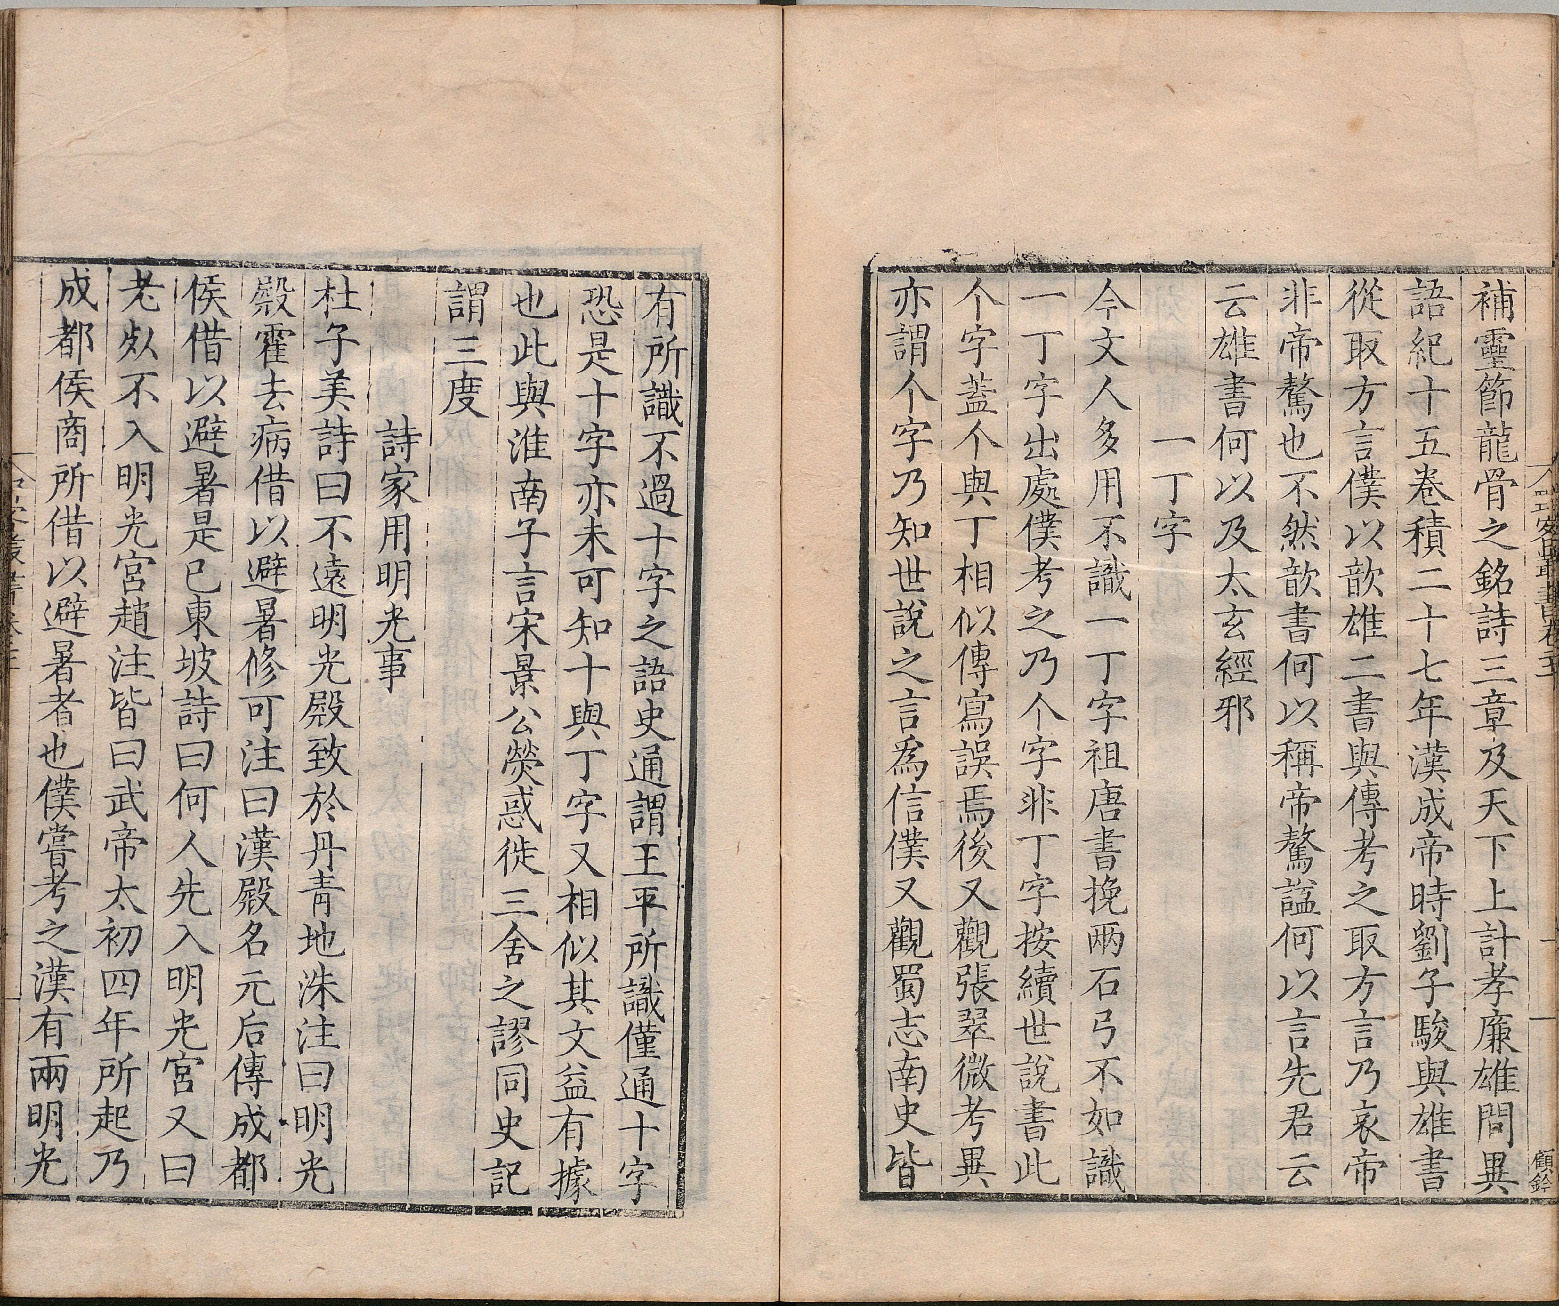 補靈節龍骨之銘詩三章及天下上計孝廉雄問異
語紀十五卷積二十七年漢成帝時劉子駿與雄書
從取方言僕以歆雄二書與傳考之取方言乃哀帝
非帝驁也不然歆書何以稱帝驁諡何以言先君云
云雄書何以及太玄經邪
一丁字
今文人多用不識一丁字祖唐書挽兩石弓不如識
一丁字出處僕考之乃个字非丁字按續世說書此
个字蓋个與丁相似傳寫誤焉後又觀張翠微考異
亦謂个字乃知世說之言為信僕又觀蜀志南史皆
有所識不過十字之語史通謂王平所識僅通十字
恐是十字亦未可知十與丁字又相似其文益有據
也此與淮南子言宋景公熒惑徙三舍之謬同史記
謂三度
詩家用明光事
杜子美詩曰不遠明光殿致於丹青地洙注曰明光
殿霍去病借以避暑修可注曰漢殿名元后傳成都
侯借以避暑是已東坡詩曰何人先入明光宮又曰
老㱓不入明光宮趙注皆曰武帝太初四年所起乃
成都侯商所借以避暑者也僕嘗考之漢有兩明光
顧鈴